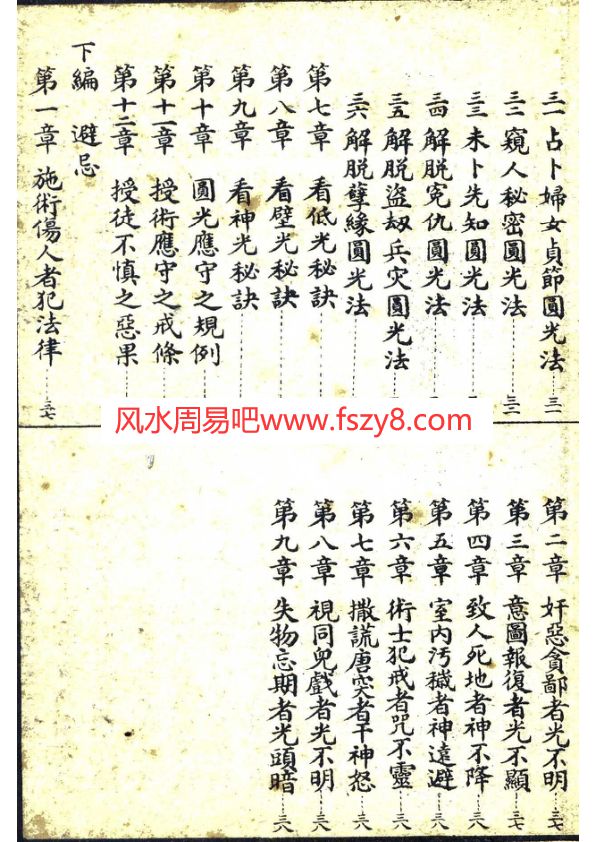 三一占卜婦女貞節圓光法……三一
三二窺人秘密圓光法……三一
三三未卜先知圓光法
三四解脱冤仇圓光法
三五解脱盜劫兵灾圓光法
三六解脱孽緣圓光法
第七章 看低光秘訣
第八章 看壁光秘訣
第九章 看神光秘訣
第十章 圓光應守之規例
第十一章 授術應守之戒條
第十二章 授徒不慎之惡果
下編 避忌
第一章 施術傷人者犯法律……三七
风水周易吧www.fszy8.com
第二章 奸惡貪鄙者光不明……三七
第三章 意圖報復者光不顯……三七
第四章 致人死地者神不降……三八
第五章 室內汚穢者神遠避……三八
第六章 術士犯戒者咒不靈……三八
第七章 撒謊唐突者干神怒……三八
第八章 視同兒戲者光不明……三八
第九章 失物忘期者光頭暗……三八